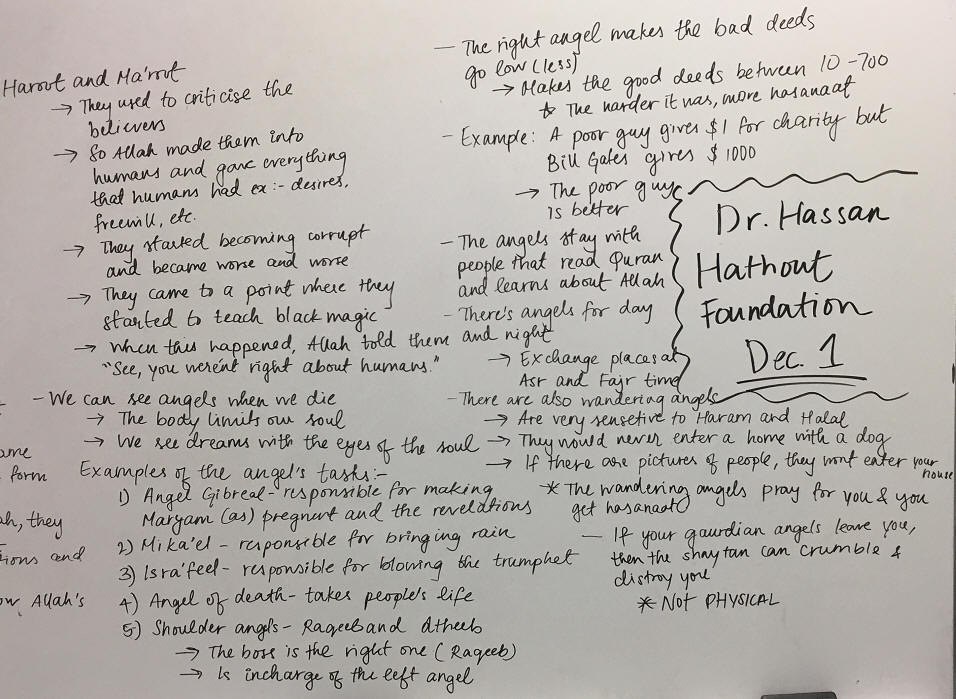 ame
form
ah, they
tions and
ow Allah's
Haroot and Ma'root
→ They used to criticise the
believers
→ So Allah made them into
humans and gave everything
that humans had ex:- desires,
freewill, etc.
→ They started becoming corrupt
and became worse and worse
→ They came to a point where they
started to teach black magic
→ When this happened, Allah told them
"See, you weren't right about humans."
- We can see angels when we die
→ The body limits our soul
→ We see dreams with the eyes of the soul
Examples of the angel's tasks:-
1) Angel Gibreal - responsible for making
Maryam (as) pregnent and the revelations
2) Mika'el - responsible for bringing rain
3) Isra'feel - responsible for blowing the trumphet
4) Angel of death - takes people's life
5) Shoulder angls - Raqeeb and Atheeb
→ The boss is the right one (Raqeeb)
→ Is incharge of the left angel
- The right angel makes the bad deeds
go low (less)
→ Makes the good deeds between 10 - 700
* The harder it was, more hasanaat
- Example: A poor guy gives $1 for charity but
Bill Gates gives $1000
→ The poor guy
is better
- The angels stay with
people that read Quran
and learns about Allah
- There's angels for day
and night
→ Exchange places at
Asr and Fajr time
- There are also wandering angels
→ Are very sensetive to Haram and Halal
→ They would never enter a home with a dog
→ If there are pictures of people, they wont enter your
house
* The wandering angels pray for you & you
get hasanaat
- If your gaurdian angels leave you,
then the shaytan can crumble &
distroy you
* NOT PHYSICAL
Dr. Hassan
Hathout
Foundation
Dec. 1